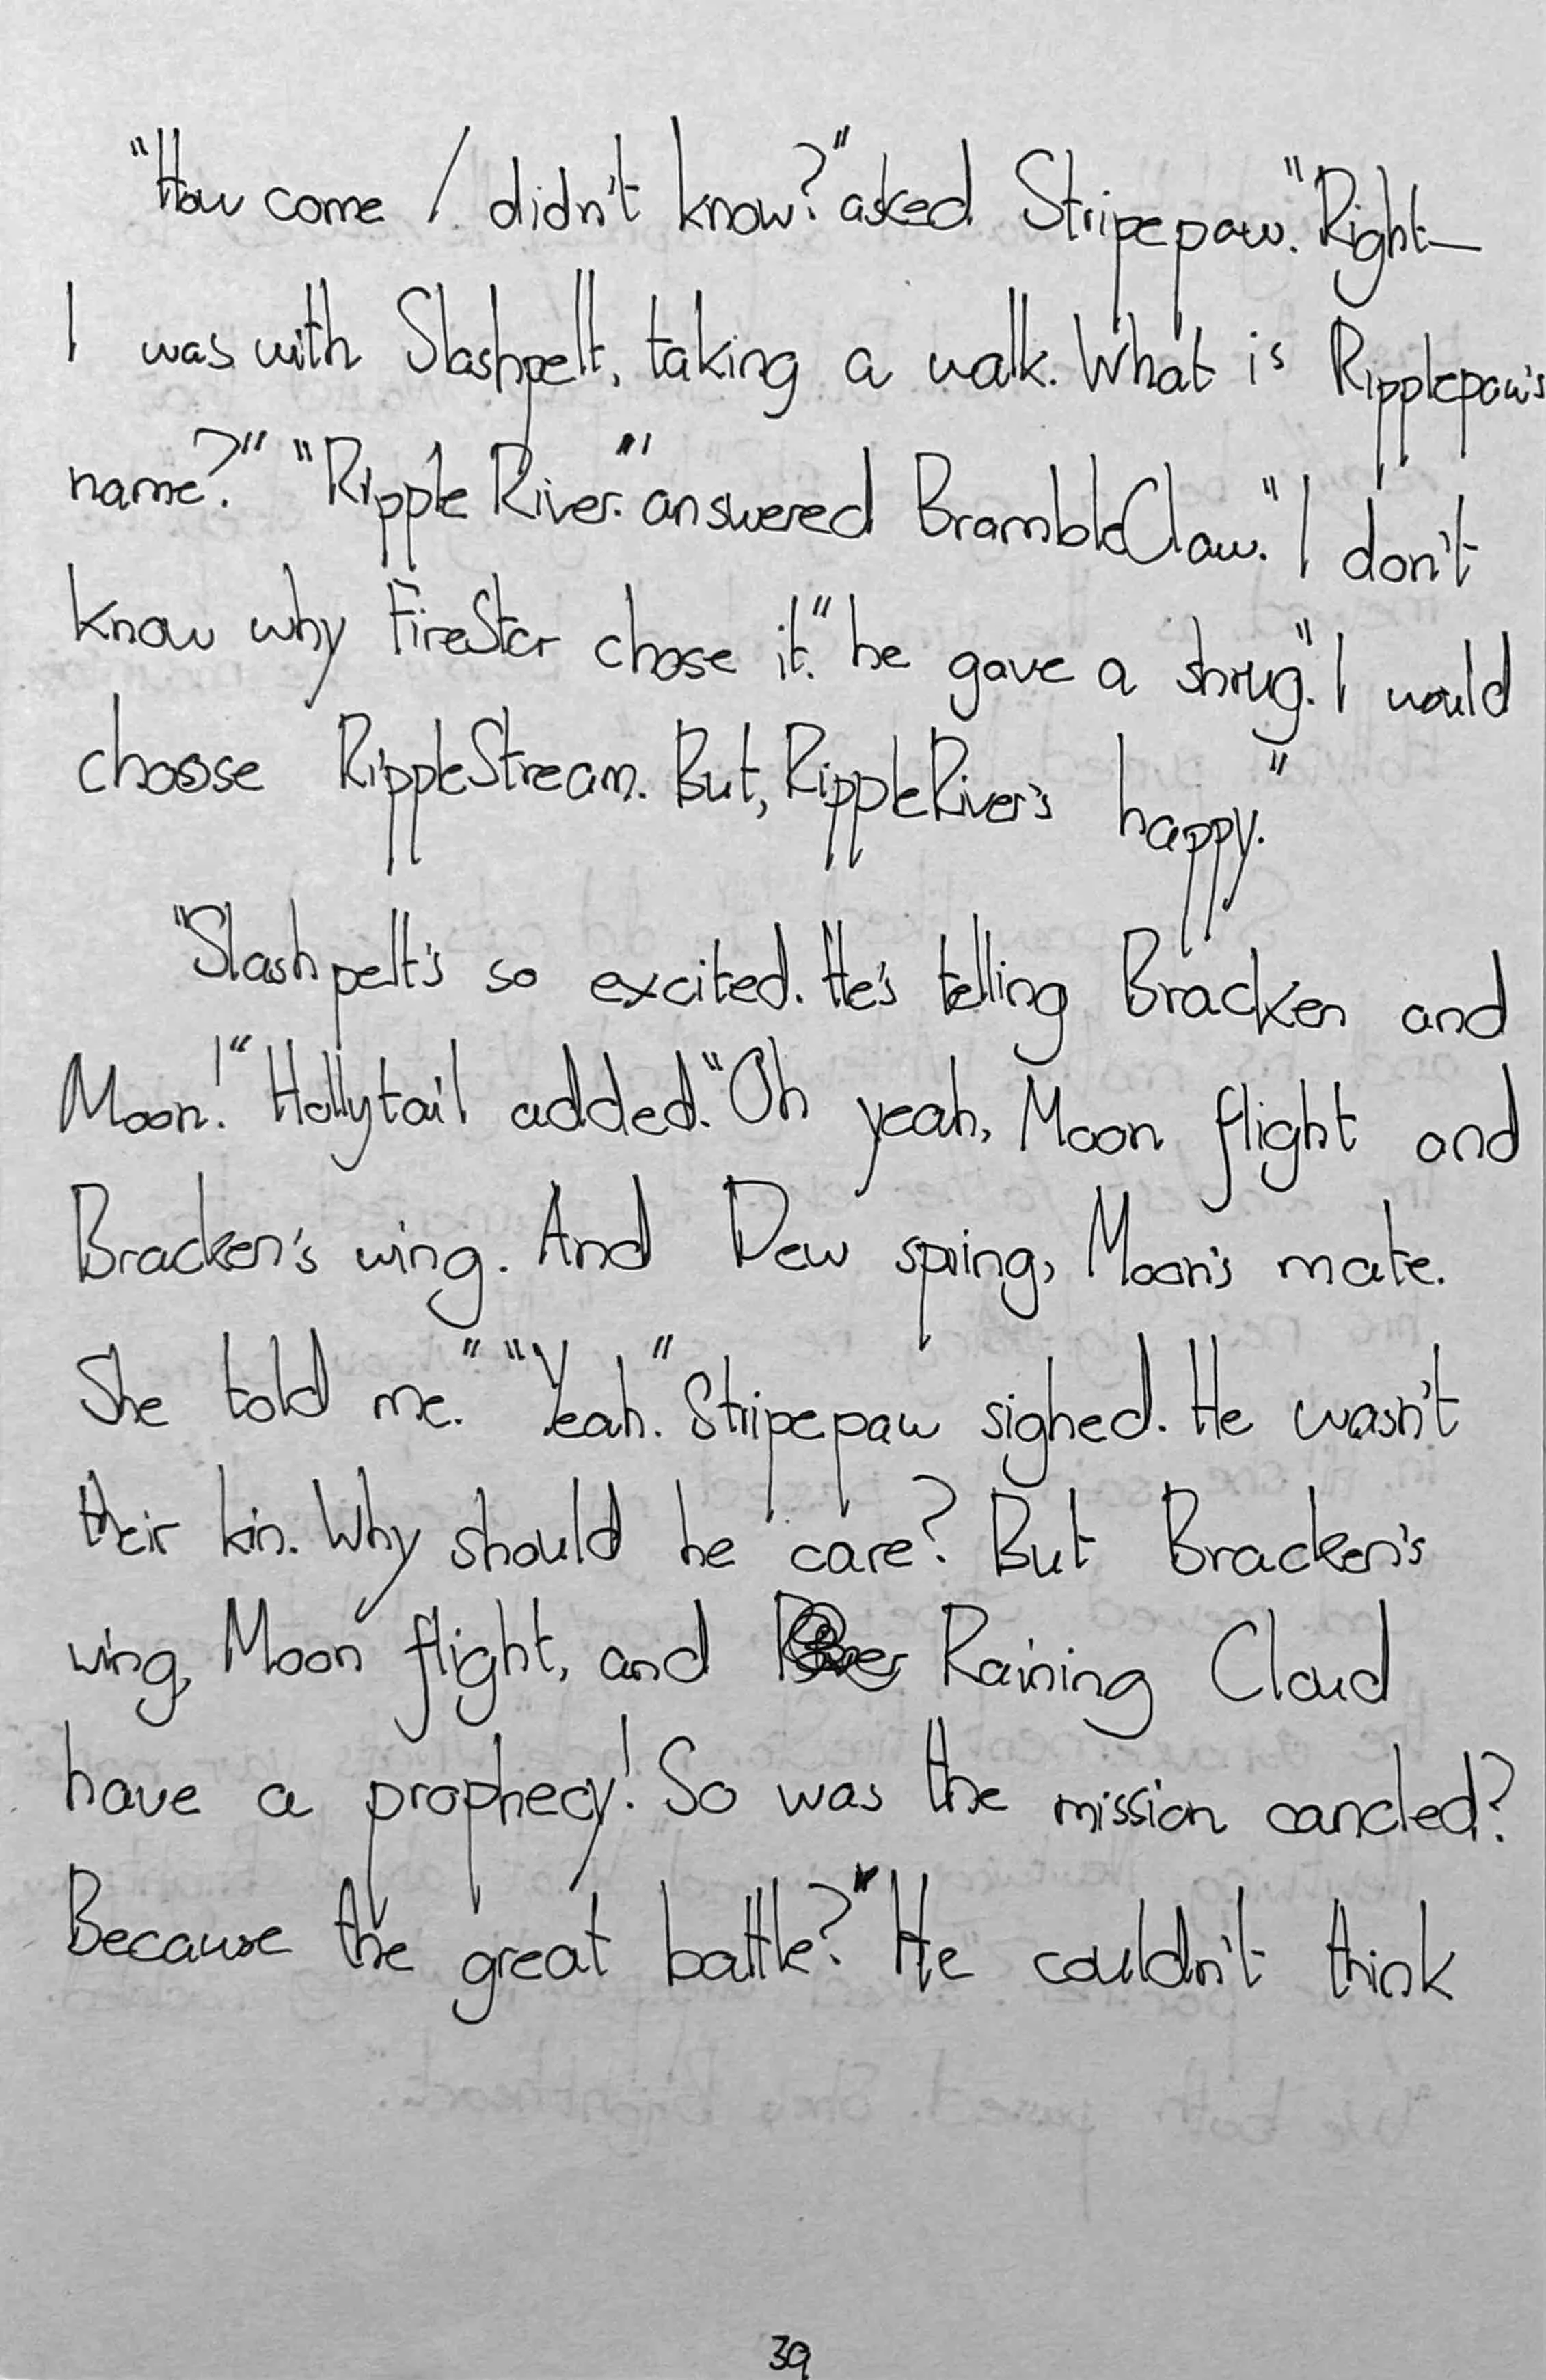 "How come I didn't know?" asked Stripepaw. "Right—
I was with Slashpelt, taking a walk. What is Ripplepaw's
name?" "Ripple River." answered BrambleClaw. "I don't
know why FireStar chose it." he gave a shrug. "I would
choose RippleStream. But, RippleRiver's happy."
"Slashpelt's so excited. He's telling Bracken and
Moon!" Hollytail added. "Oh yeah, Moon flight and
Bracken's wing. And Dew spring, Moon's mate.
She told me." "Yeah." Stripepaw sighed. He wasn't
their kin. Why should he care? But Bracken's
wing, Moon flight, and Raining Cloud
have a prophecy! So was the mission cancled?
Because the great battle?" He couldn't think
39